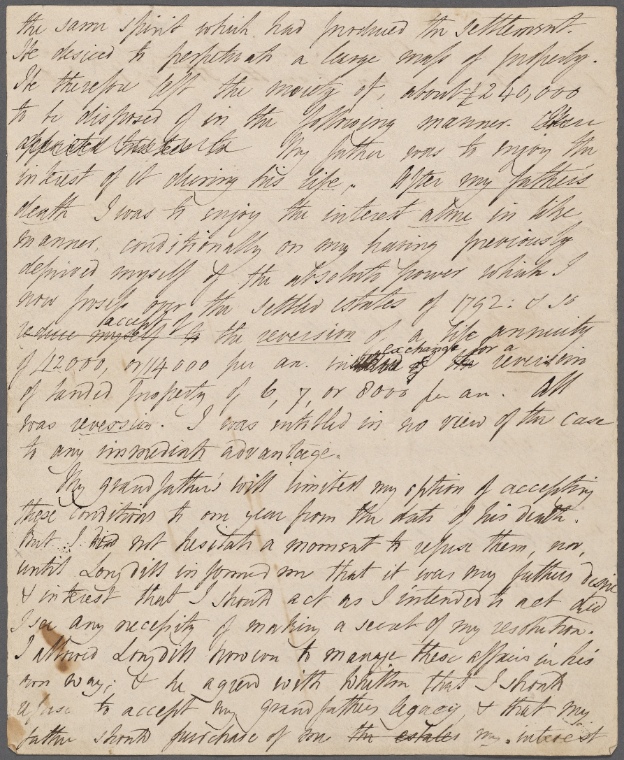 the same spirit which had produced the settlement.
He desired to perpetuate a large mass of property.
He therefore left the moiety of, about £240,000
to be disposed of in the following manner.
My father was to enjoy the
interest of it during his life. After my fathers
death I was to enjoy the interest alone in like
manner, conditionally on my having previously
deprived myself of the absolute power which I
now possess over the settled estates of 1792: & so
accept of
reduce myself to the reversion of a life annuity
exchange for a
of 12000, or 14000 per an. in reversion
of landed Property of 6, 7, or 8000 per an. All
was reversion. I was entitled in no view of the case
to any immediate advantage.
My grandfather's will limited my option of accepting
these conditions to one year from the date of his death.
But I did not hesitate a moment to refuse them, nor,
until Longdill informed me that it was my fathers desire
& interest that I should act as I intended to act did
I see any necessity of making a secret of my resolution.
I allowed Longdill however to manage these affairs in his
own way; & he agreed with Whitton that I should
refuse to accept my grandfathers legacy & that my
father should purchase of me the estates my interest